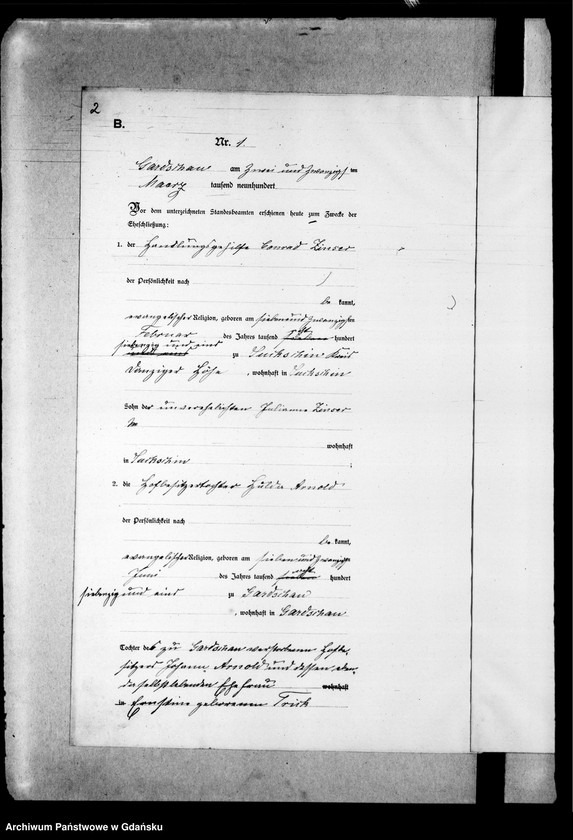 2
B.
Nr. 1.
Gardschau am zwei und zwanzigsten
Maerz tausend neunhundert
Vor dem unterzeichneten Standesbeamten erschienen heute zum Zwecke der
Eheschließung:
1. der Handlungsgehilfe Conrad Zinser
der Persönlichkeit nach
be kannt,
evangelischer Religion, geboren am siebenundzwanzigsten
Februar des Jahres tausend acht hundert
siebenzig und eins zu Suckschin Kreis
Danziger Höhe, wohnhaft in Suckschin
Sohn der unverehelichten Julianne Zinser
wohnhaft
in Suckschin;
2. die Hofbesitzertochter Hulda Arnold
der Persönlichkeit nach
be kannt,
evangelischer Religion, geboren am siebenundzwanzigsten
Juni des Jahres tausend acht hundert
siebenzig und eins zu Gardschau
, wohnhaft in Gardschau
Tochter des zu Gardschau verstorbenen Hofbe-
sitzers Johann Arnold und dessen
daselbst lebenden Ehefrau wohnhaft
in Ernstine geborenen Trick
Archiwum Państwowe w Gdańsku